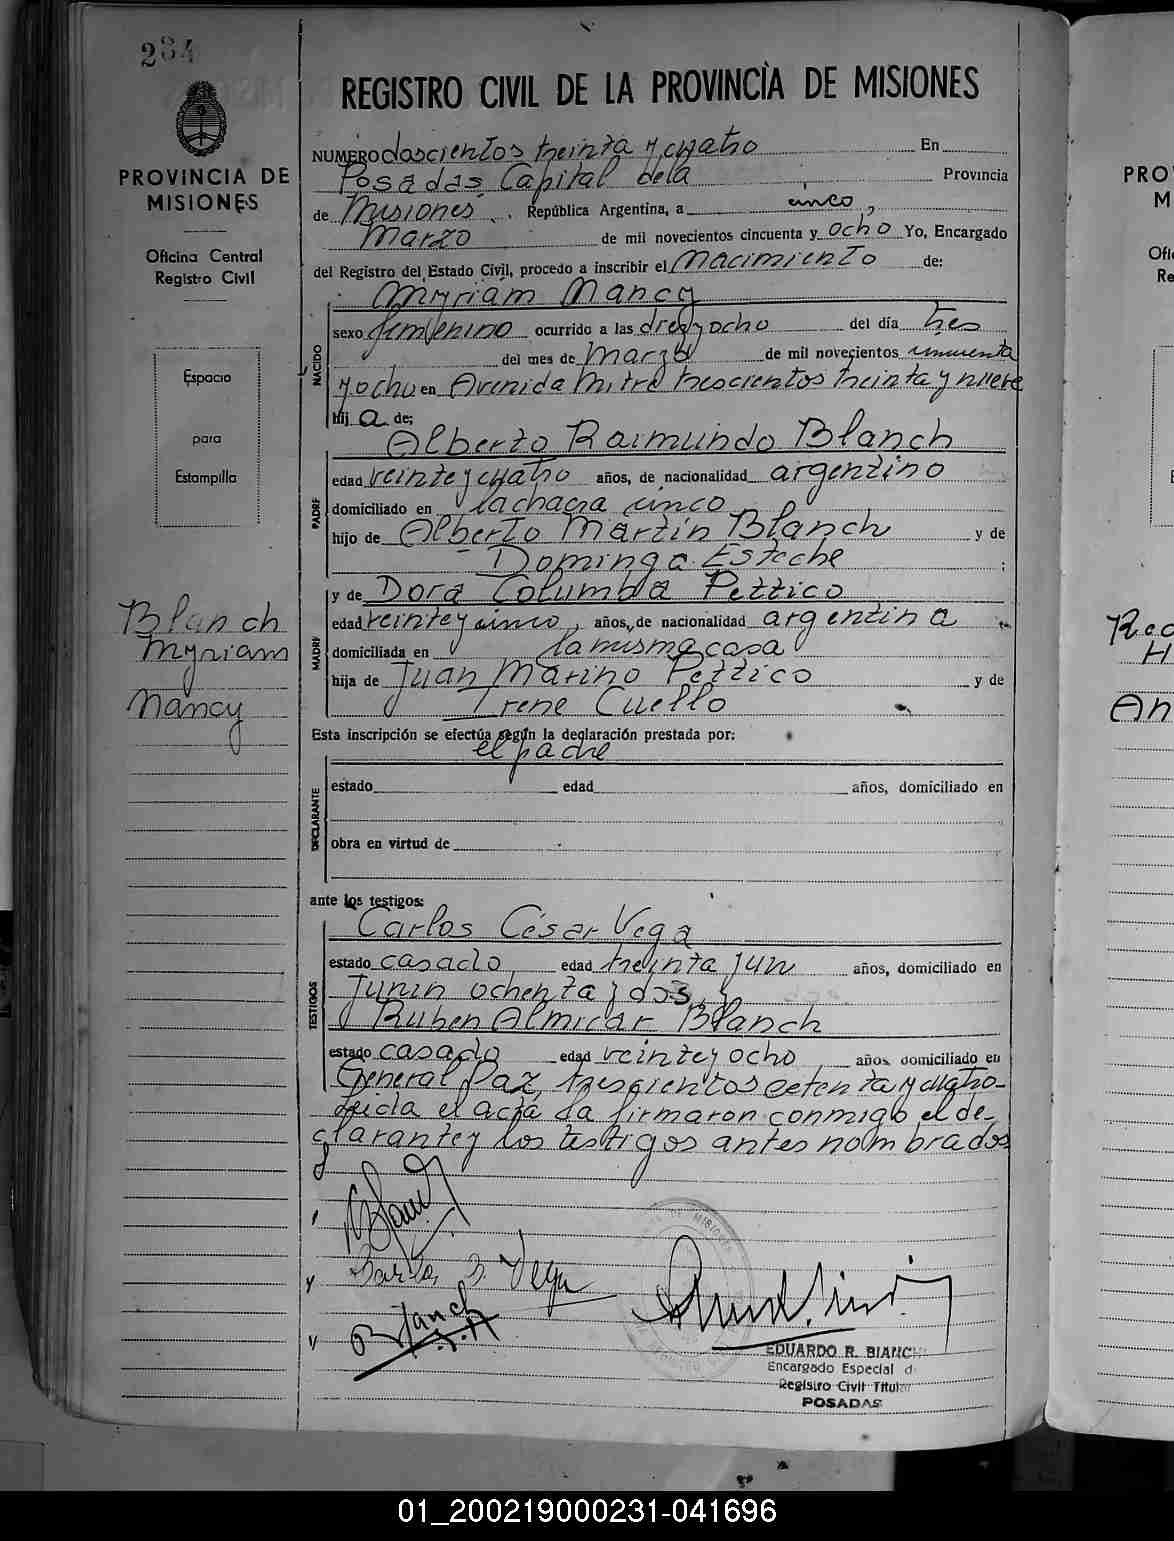 234
PROVINCIA DE
MISIONES
Oficina Central
Registro Civil
Espacio
para
Estampilla
Blanch
Myriam
Nancy
REGISTRO CIVIL DE LA PROVINCIA DE MISIONES
NUMERO doscientos treinta y cuatro En
Posadas Capital dela Provincia
de Misiones República Argentina, a cinco,
Marzo de mil novecientos cincuenta y ocho Yo, Encargado
del Registro del Estado Civil, procedo a inscribir el Nacimiento de:
Myriam Nancy
NACIDO
sexo femenino ocurrido a las diez y ocho del día tres
del mes de Marzo de mil novecientos cincuenta
y ocho en Avenida Mitre trescientos treinta y nueve
hij a de:
Alberto Raimundo Blanch
PADRE
edad veinte y cuatro años, de nacionalidad argentino
domiciliado en la chacra cinco
hijo de Alberto Martin Blanch y de
Dominga Esteche ;
y de Dora Columba Pettico
MADRE
edad veinte y cinco, años, de nacionalidad argentina
domiciliada en la misma casa
hija de Juan Marino Pettico y de
Irene Cuello
Esta inscripción se efectúa según la declaración prestada por:
el padre
DECLARANTE
estado edad años, domiciliado en
obra en virtud de
ante los testigos:
Carlos César Vega
TESTIGOS
estado casado, edad treinta y un años, domiciliado en
Junin ochenta y dos, y
Ruben Almicar Blanch
estado casado edad veinte y ocho años domiciliado en
General Paz, trescientos setenta y cuatro-
leida el acta la firmaron conmigo el de-
clarante y los testigos antes nombrados
Blanch
Carlos C. Vega
Blanch
EDUARDO R. BIANCHI
Encargado Especial d
Registro Civil Titular
POSADAS
PRO
M
Ofi
Re
E
An
01_200219000231-041696